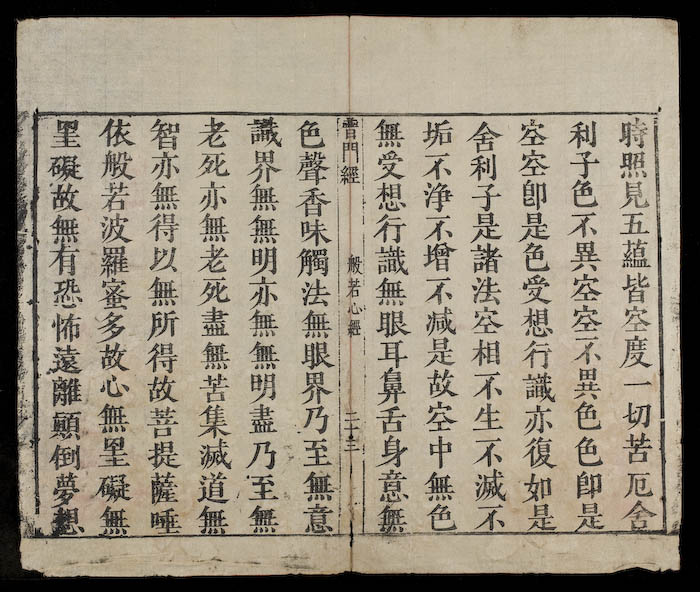 時照見五蘊皆空度一切苦厄舍
利子色不異空空不異色色卽是
空空卽是色受想行識亦復如是
舍利子是諸法空相不生不滅不
垢不浄不增不减是故空中無色
無受想行識無眼耳鼻舌身意無
門經
般若心經
二十三
色聲香味觸法無眼界乃至無意
識界無無明亦無無明盡乃至無
老死亦無老死盡無苦集滅道無
智亦無得以無所得故菩提薩埵
依般若波羅蜜多故心無罣礙無
罣礙故無有恐怖遠離顚倒夢想